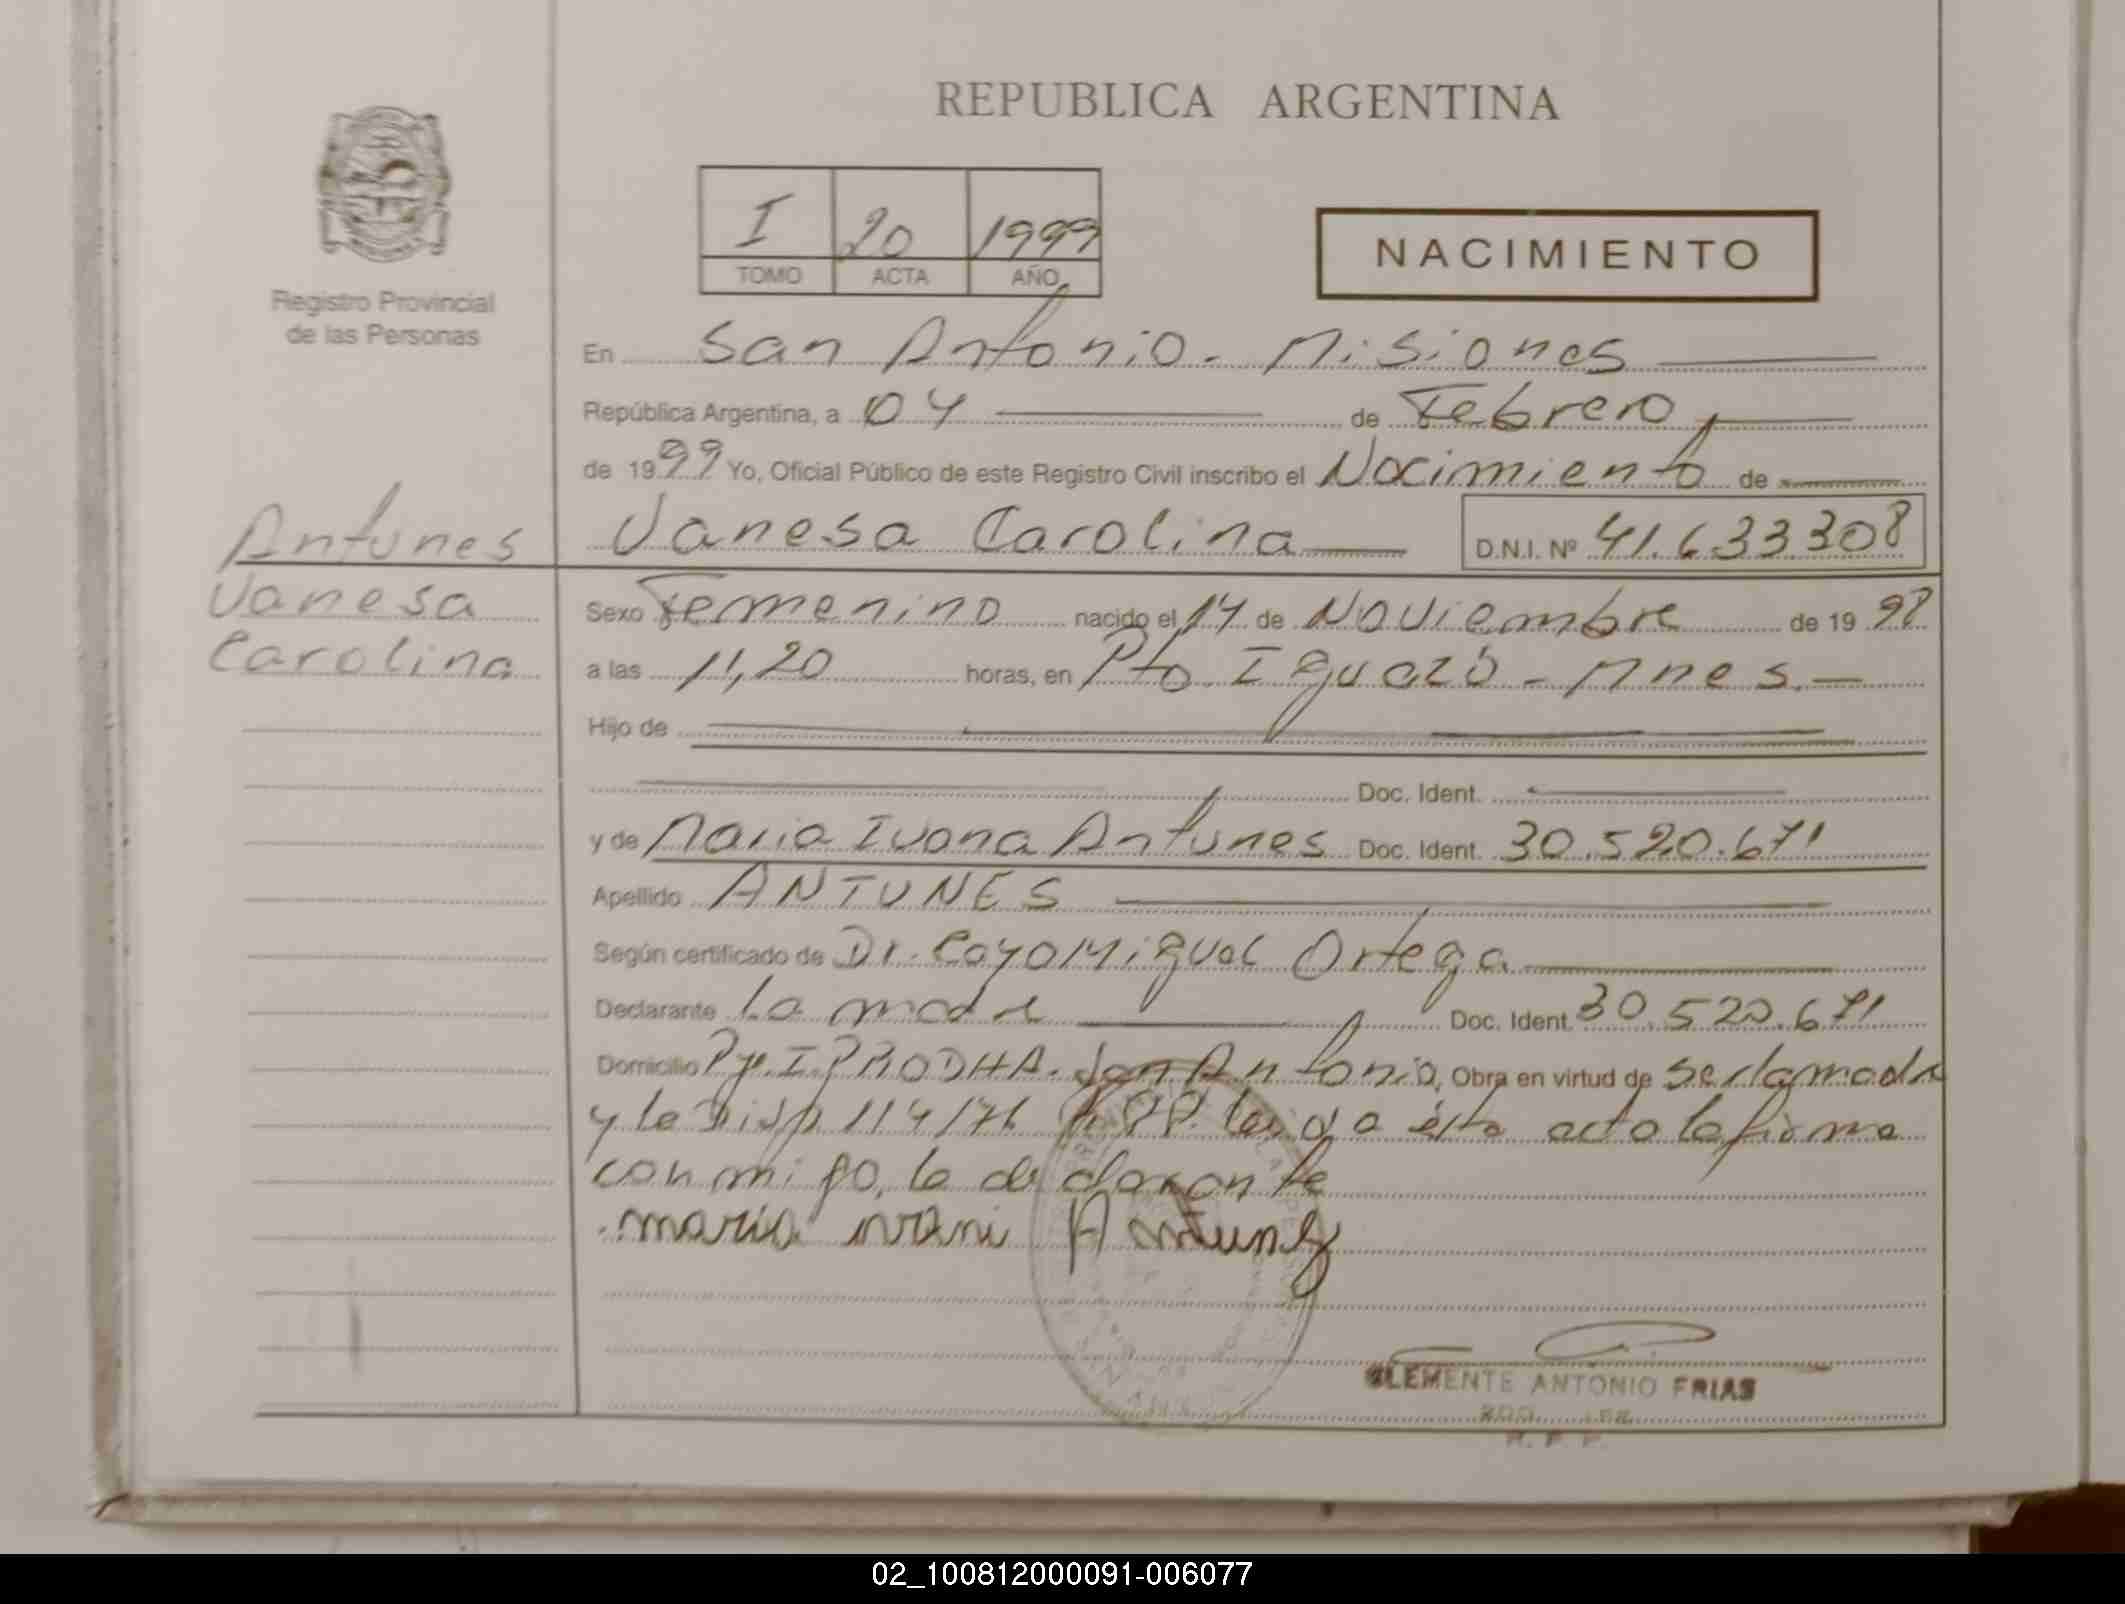 REPUBLICA ARGENTINA
I 20 1999
TOMO ACTA AÑO
NACIMIENTO
Registro Provincial
de las Personas
En San Antonio - Misiones
República Argentina, a 04 de Febrero
de 1999 Yo, Oficial Público de este Registro Civil inscribo el Nacimiento de
Vanesa Carolina D.N.I. Nº 41.633.308
Antunes
Vanesa
Carolina
Sexo Femenino nacido el 14 de Noviembre de 1998
a las 11,20 horas, en Pto Iguazú - Mnes.
Hijo de
Doc. Ident.
y de Maria Ivana Antunes Doc. Ident. 30.520.671
Apellido ANTUNES
Según certificado de Dr. Cayo Miguel Ortega
Declarante La madre Doc. Ident. 30.520.671
Domicilio I.PRODHA. San Antonio, Obra en virtud de ser la madre
y la Disp. 114/76 leida ésta acta la firma
conmigo, la declarante
maria ivani Antunes
CLEMENTE ANTONIO FRIAS
R. P. P.
02_100812000091-006077